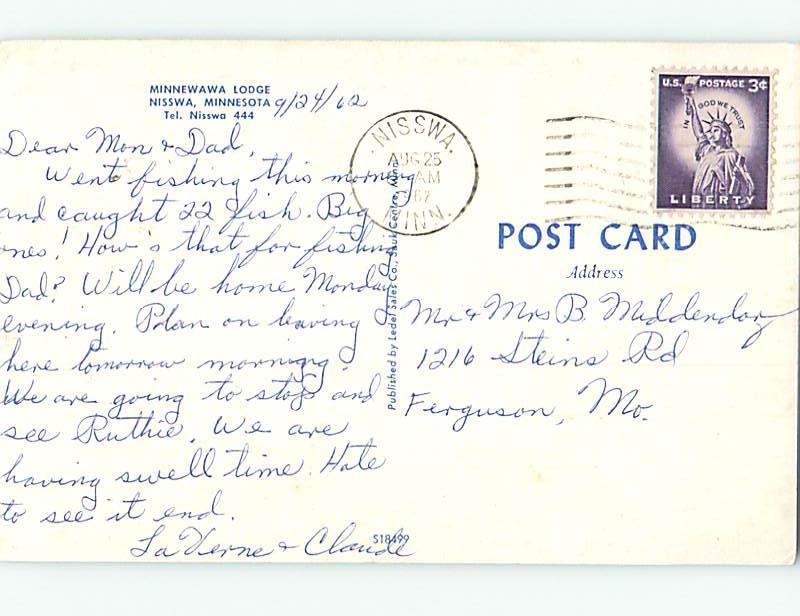 MINNEWAWA LODGE
NISSWA, MINNESOTA 9/24/62
Tel. Nisswa 444
Dear Mom & Dad,
Went fishing this morning
and caught 22 fish. Big
ones! How's that for fishing
Dad? Will be home Monday
evening. Plan on leaving
here tomorrow morning.
We are going to stop and
see Ruthie. We are
having swell time. Hate
to see it end.
LaVerne & Claude
S18499
Published by Ledel Sales Co., Sauk Centre, Minn.
NISSWA.
AUG 25
AM
MINN.
U.S. POSTAGE 3¢
IN GOD WE TRUST
LIBERTY
POST CARD
Address
Mr & Mrs B. Middendorf
1216 Steins Rd
Ferguson, Mo.